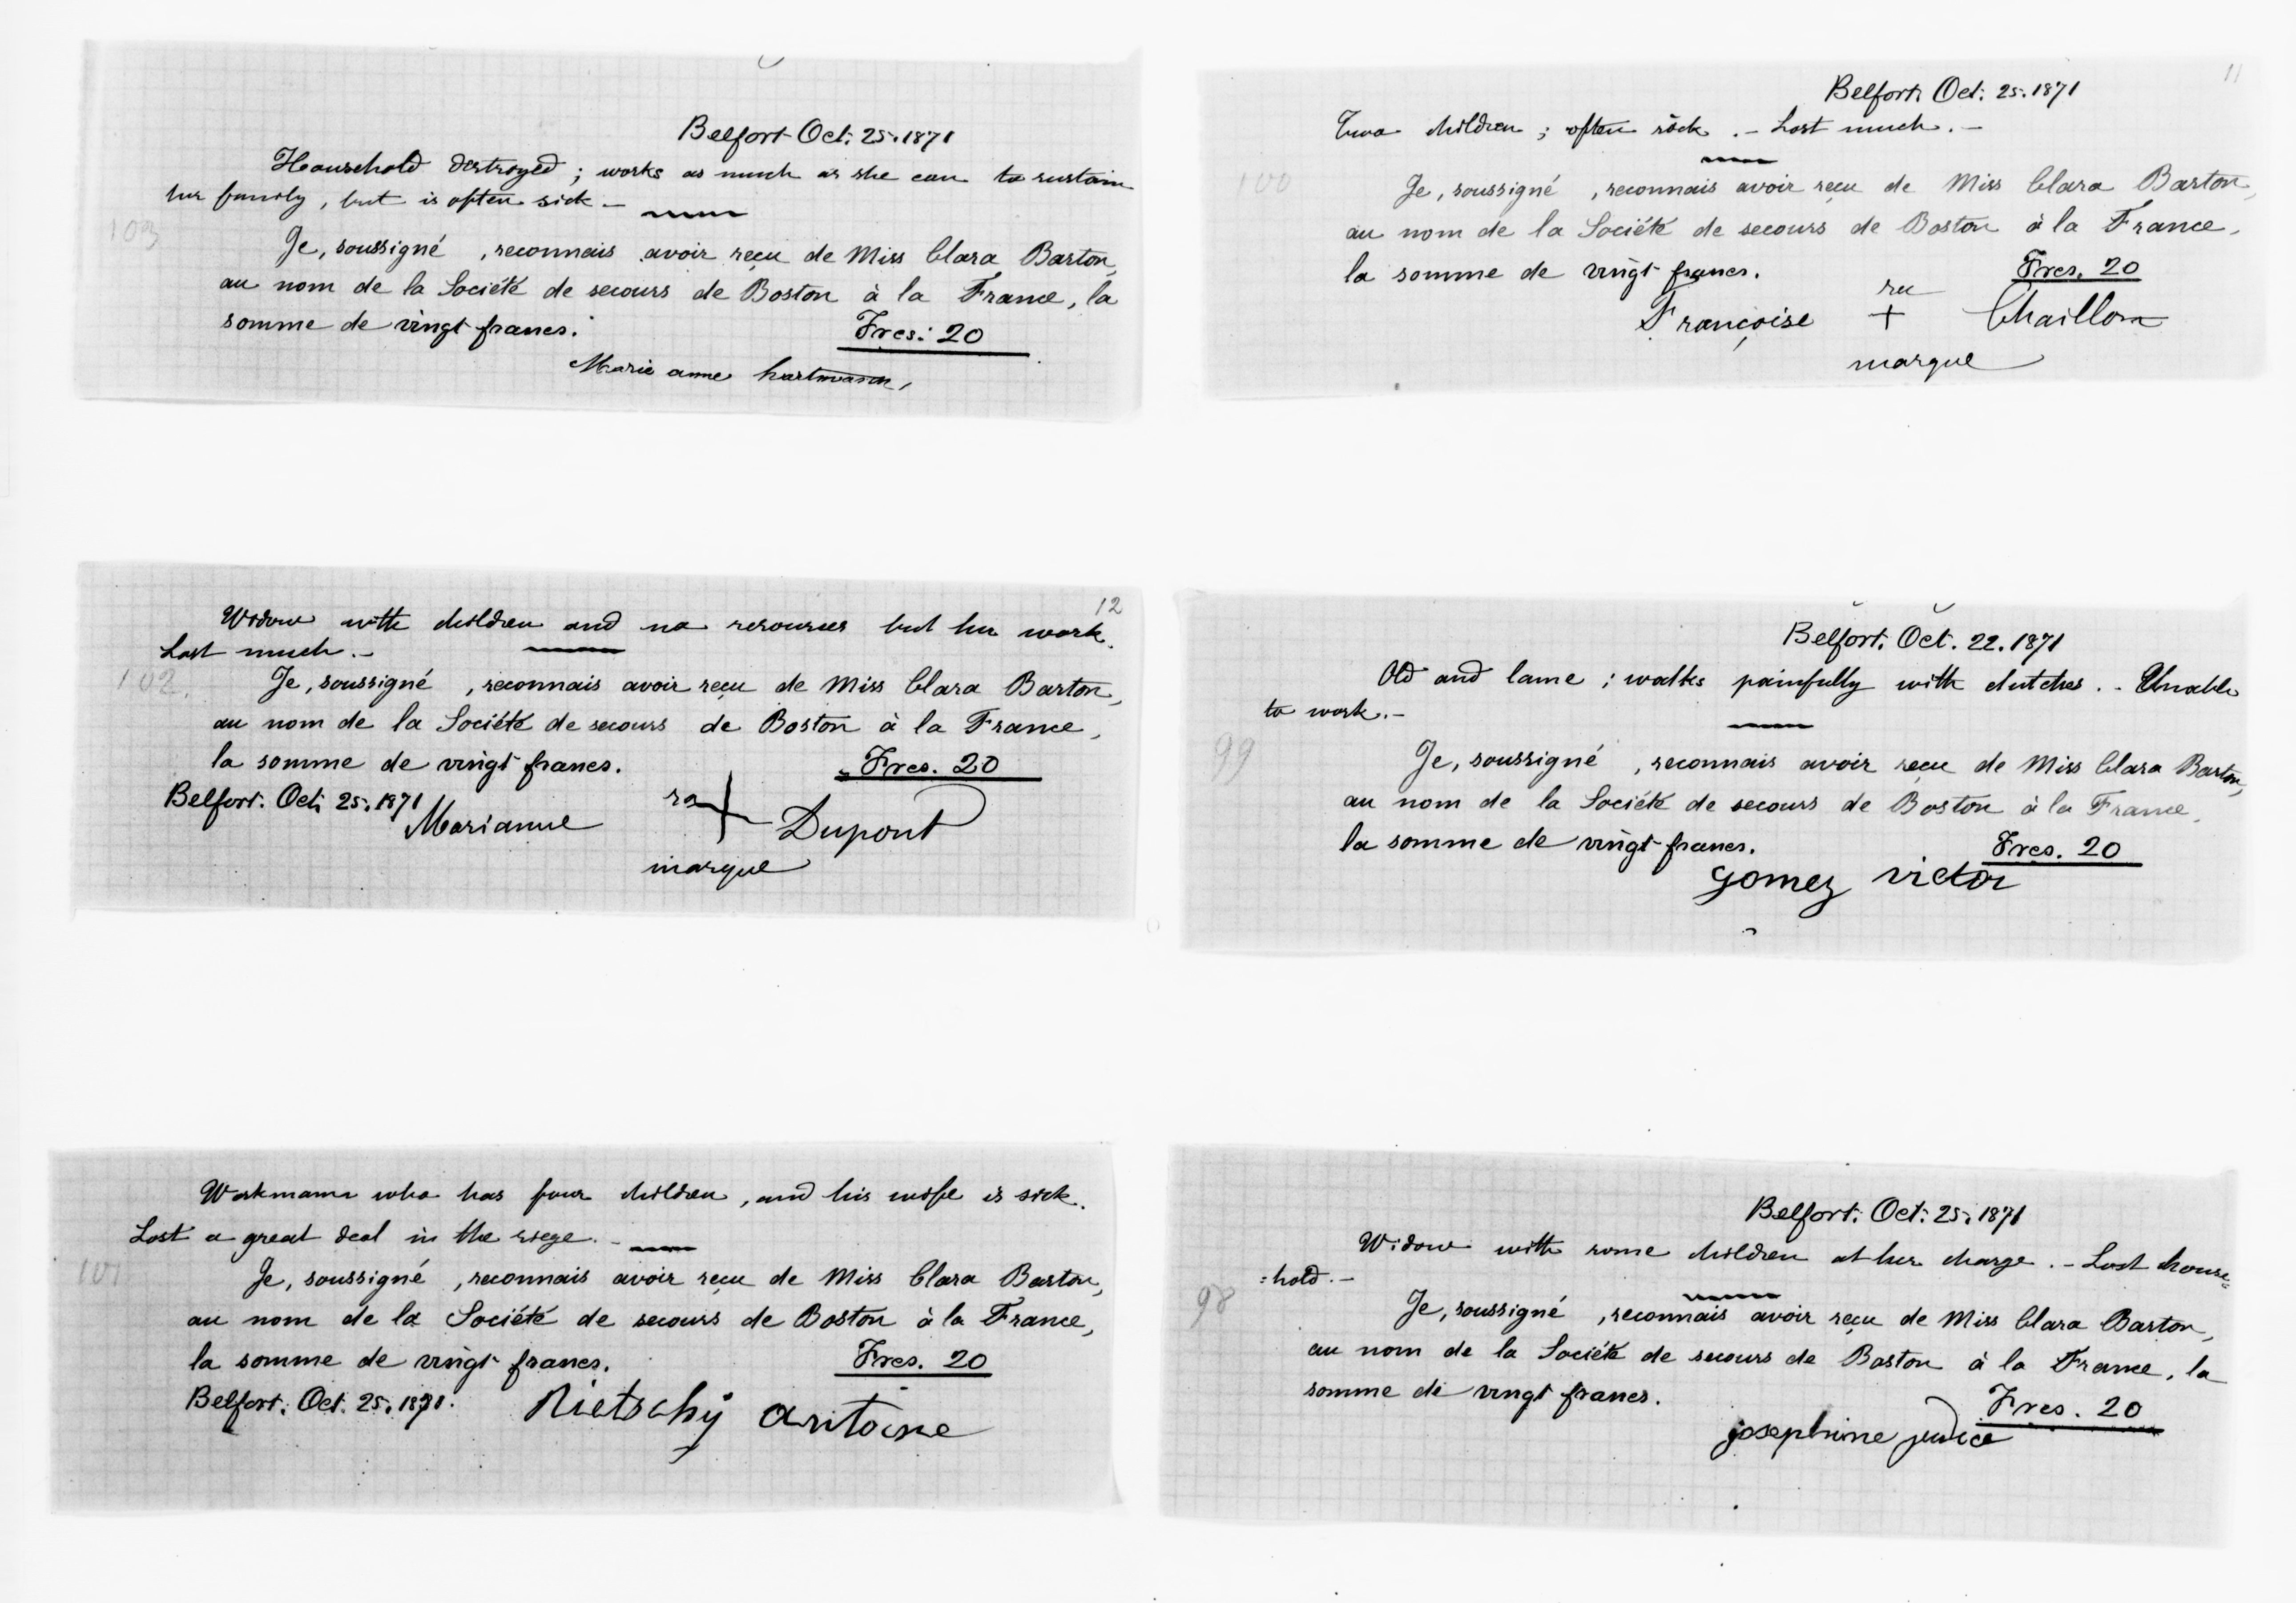 Belfort Oct. 25. 1871
Household destroyed ; works as much as she can to sustain
her family, but is often sick.-
103
Je, soussigné , reconnais avoir reçu de Miss Clara Barton,
au nom de la Société de secours de Boston à la France, la
somme de vingt francs.
Frcs. 20
Marie anne hartmann,
12
Widow with children and no resources but her work.
Lost much.-
102.
Je, soussigné , reconnais avoir reçu de Miss Clara Barton,
au nom de la Société de secours de Boston à la France,
la somme de vingt francs.
Frcs. 20
Belfort. Oct. 25. 1871
Marianne sa + Dupont
marque
Workmann who has four children, and his wife is sick.
Lost a great deal in the siege.-
101
Je, soussigné , reconnais avoir reçu de Miss Clara Barton,
au nom de la Société de secours de Boston à la France,
la somme de vingt francs.
Frcs. 20
Belfort. Oct. 25. 1871.
Rietschÿ antoine
11
Belfort. Oct. 25. 1871
Two children ; often sick .- Lost much.-
100
Je, soussigné , reconnais avoir reçu de Miss Clara Barton,
au nom de la Société de secours de Boston à la France,
la somme de vingt francs.
Frcs. 20
Françoise sa + Chaillon
marque
Belfort. Oct. 22. 1871
Old and lame ; walks painfully with clutches .- Unable
to work.-
99
Je, soussigné , reconnais avoir reçu de Miss Clara Barton,
au nom de la Société de secours de Boston à la France,
la somme de vingt francs.
Frcs. 20
gomez victor
Belfort. Oct. 25. 1871
Widow with some children at her charge .- Lost house=
=hold.-
98
Je, soussigné , reconnais avoir reçu de Miss Clara Barton,
au nom de la Société de secours de Boston à la France, la
somme de vingt francs.
Frcs. 20
josephine judice